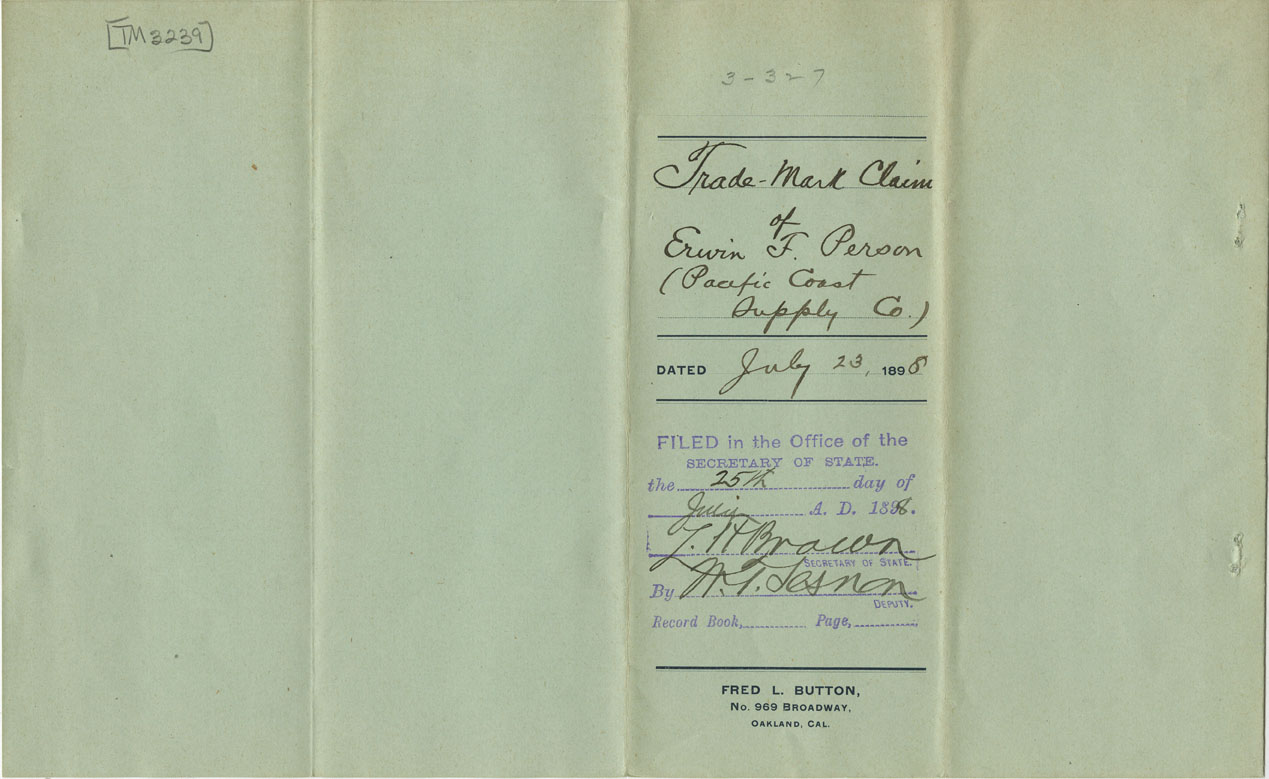 [TM 3239]
3-327
Trade-Mark Claim
of
Erwin F. Person
(Pacific Coast
Supply Co.)
DATED July 23, 1898
FILED in the Office of the
SECRETARY OF STATE.
the 25th day of
July A. D. 1898.
L. H Brown
SECRETARY OF STATE.
By W. T. Sesnon
DEPUTY.
Record Book, Page,
FRED L. BUTTON,
No. 969 BROADWAY,
OAKLAND, CAL.